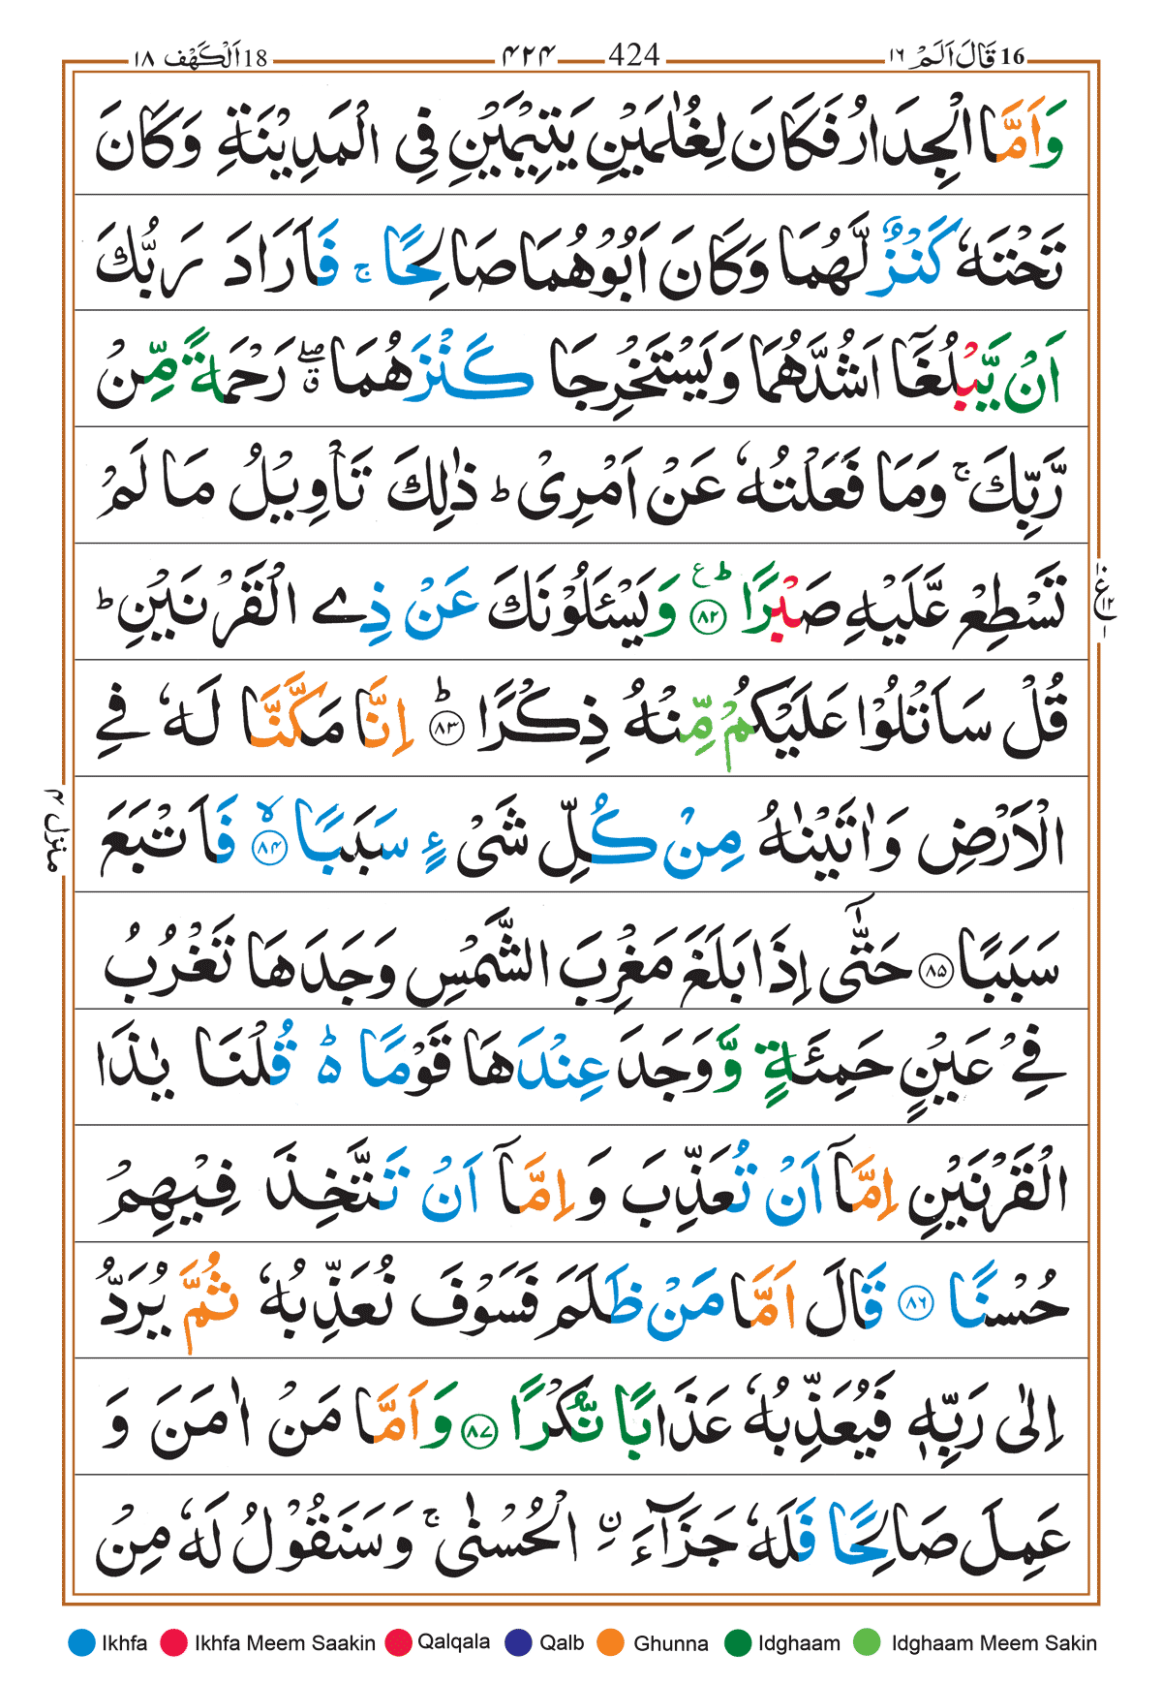 16 قَالَ اَلَمْ ١٦ 424 ۴۲۴ 18 اَلْكَهْف ١٨
وَاَمَّا الْجِدَارُ فَكَانَ لِغُلٰمَيْنِ يَتِيْمَيْنِ فِى الْمَدِيْنَةِ وَكَانَ
تَحْتَهٗ كَنْزٌ لَّهُمَا وَكَانَ اَبُوْهُمَا صَالِحًا ۚ فَاَرَادَ رَبُّكَ
اَنْ يَّبْلُغَآ اَشُدَّهُمَا وَيَسْتَخْرِجَا كَنْزَهُمَا ۖق رَحْمَةً مِّنْ
رَّبِّكَ ۚ وَمَا فَعَلْتُهٗ عَنْ اَمْرِىْ ؕ ذٰلِكَ تَاْوِيْلُ مَا لَمْ
تَسْطِعْ عَّلَيْهِ صَبْرًا ؕع ﴿۸۲﴾ وَيَسْئَلُوْنَكَ عَنْ ذِے الْقَرْنَيْنِ ؕ
قُلْ سَاَتْلُوْا عَلَيْكُمْ مِّنْهُ ذِكْرًا ؕ ﴿۸۳﴾ اِنَّا مَكَّنَّا لَهٗ فِے
الْاَرْضِ وَاٰتَيْنٰهُ مِنْ كُلِّ شَىْءٍ سَبَبًا ۙ ﴿۸۴﴾ فَاَتْبَعَ
سَبَبًا ﴿۸۵﴾ حَتّٰٓى اِذَا بَلَغَ مَغْرِبَ الشَّمْسِ وَجَدَهَا تَغْرُبُ
فِےْ عَيْنٍ حَمِئَةٍ وَّوَجَدَ عِنْدَهَا قَوْمًا ؕ۵ قُلْنَا يٰذَا
الْقَرْنَيْنِ اِمَّآ اَنْ تُعَذِّبَ وَاِمَّآ اَنْ تَتَّخِذَ فِيْهِمْ
حُسْنًا ﴿۸۶﴾ قَالَ اَمَّا مَنْ ظَلَمَ فَسَوْفَ نُعَذِّبُهٗ ثُمَّ يُرَدُّ
اِلٰى رَبِّهٖ فَيُعَذِّبُهٗ عَذَابًا نُّكْرًا ﴿۸۷﴾ وَاَمَّا مَنْ اٰمَنَ وَ
عَمِلَ صَالِحًا فَلَهٗ جَزَآءَ ۨ الْحُسْنٰى ۚ وَسَنَقُوْلُ لَهٗ مِنْ
منزل ۴
Ikhfa Ikhfa Meem Saakin Qalqala Qalb Ghunna Idghaam Idghaam Meem Sakin